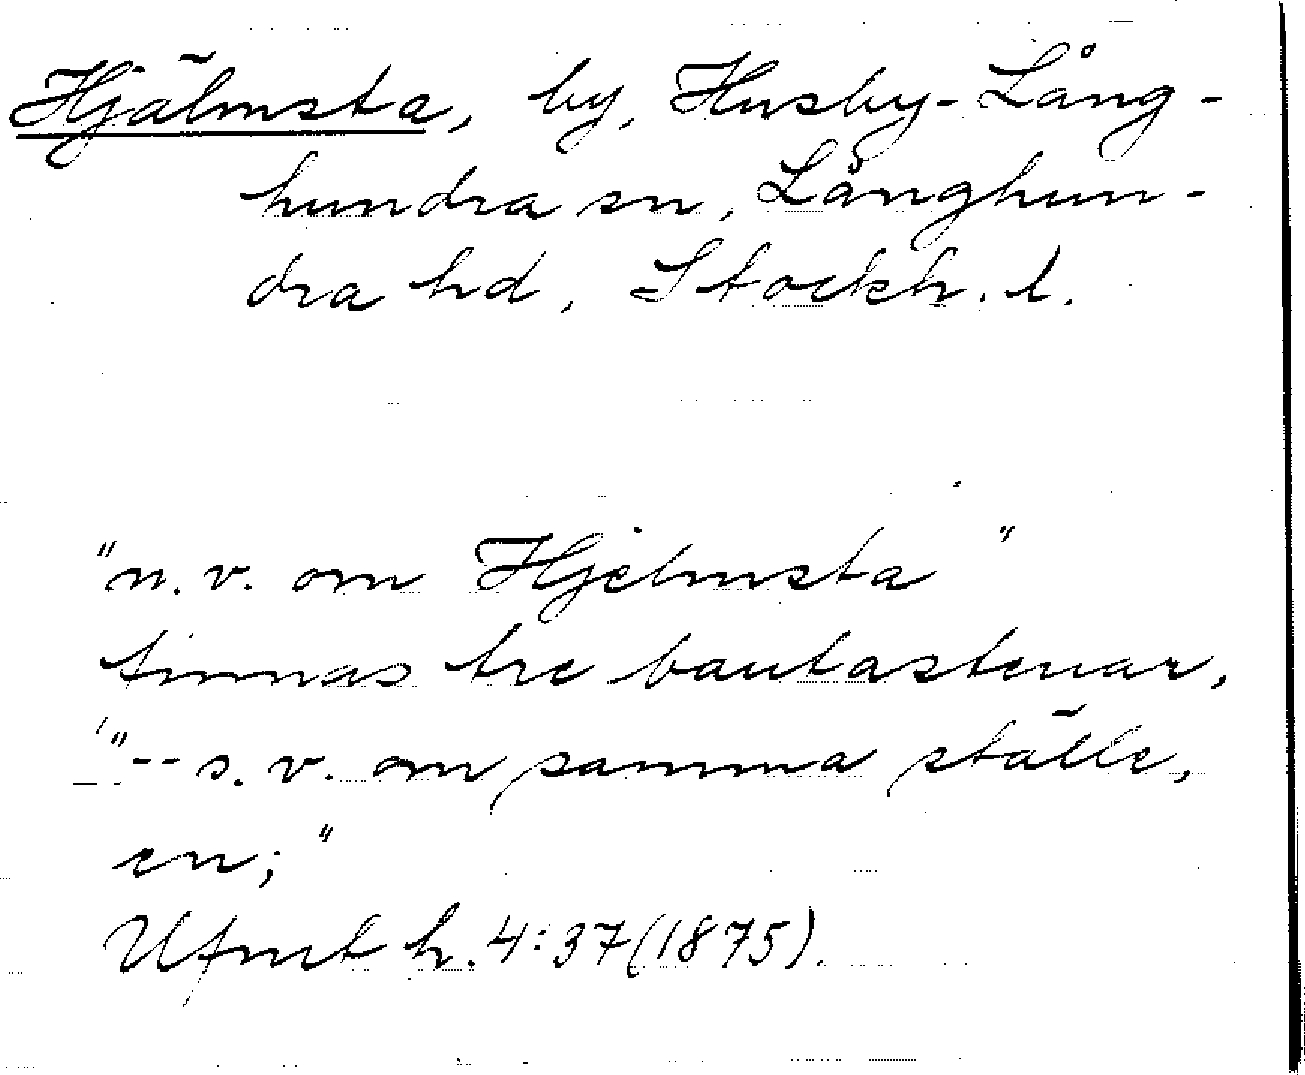 Hjälmsta, by, Husby-Lång-
hundra sn, Långhun-
dra hd, Stockh. l.
"n. v. om Hjelmsta"
finnas tre bautastenar,
"-- s. v. om samma ställe,
en;"
Ufmt h. 4:37 (1875).